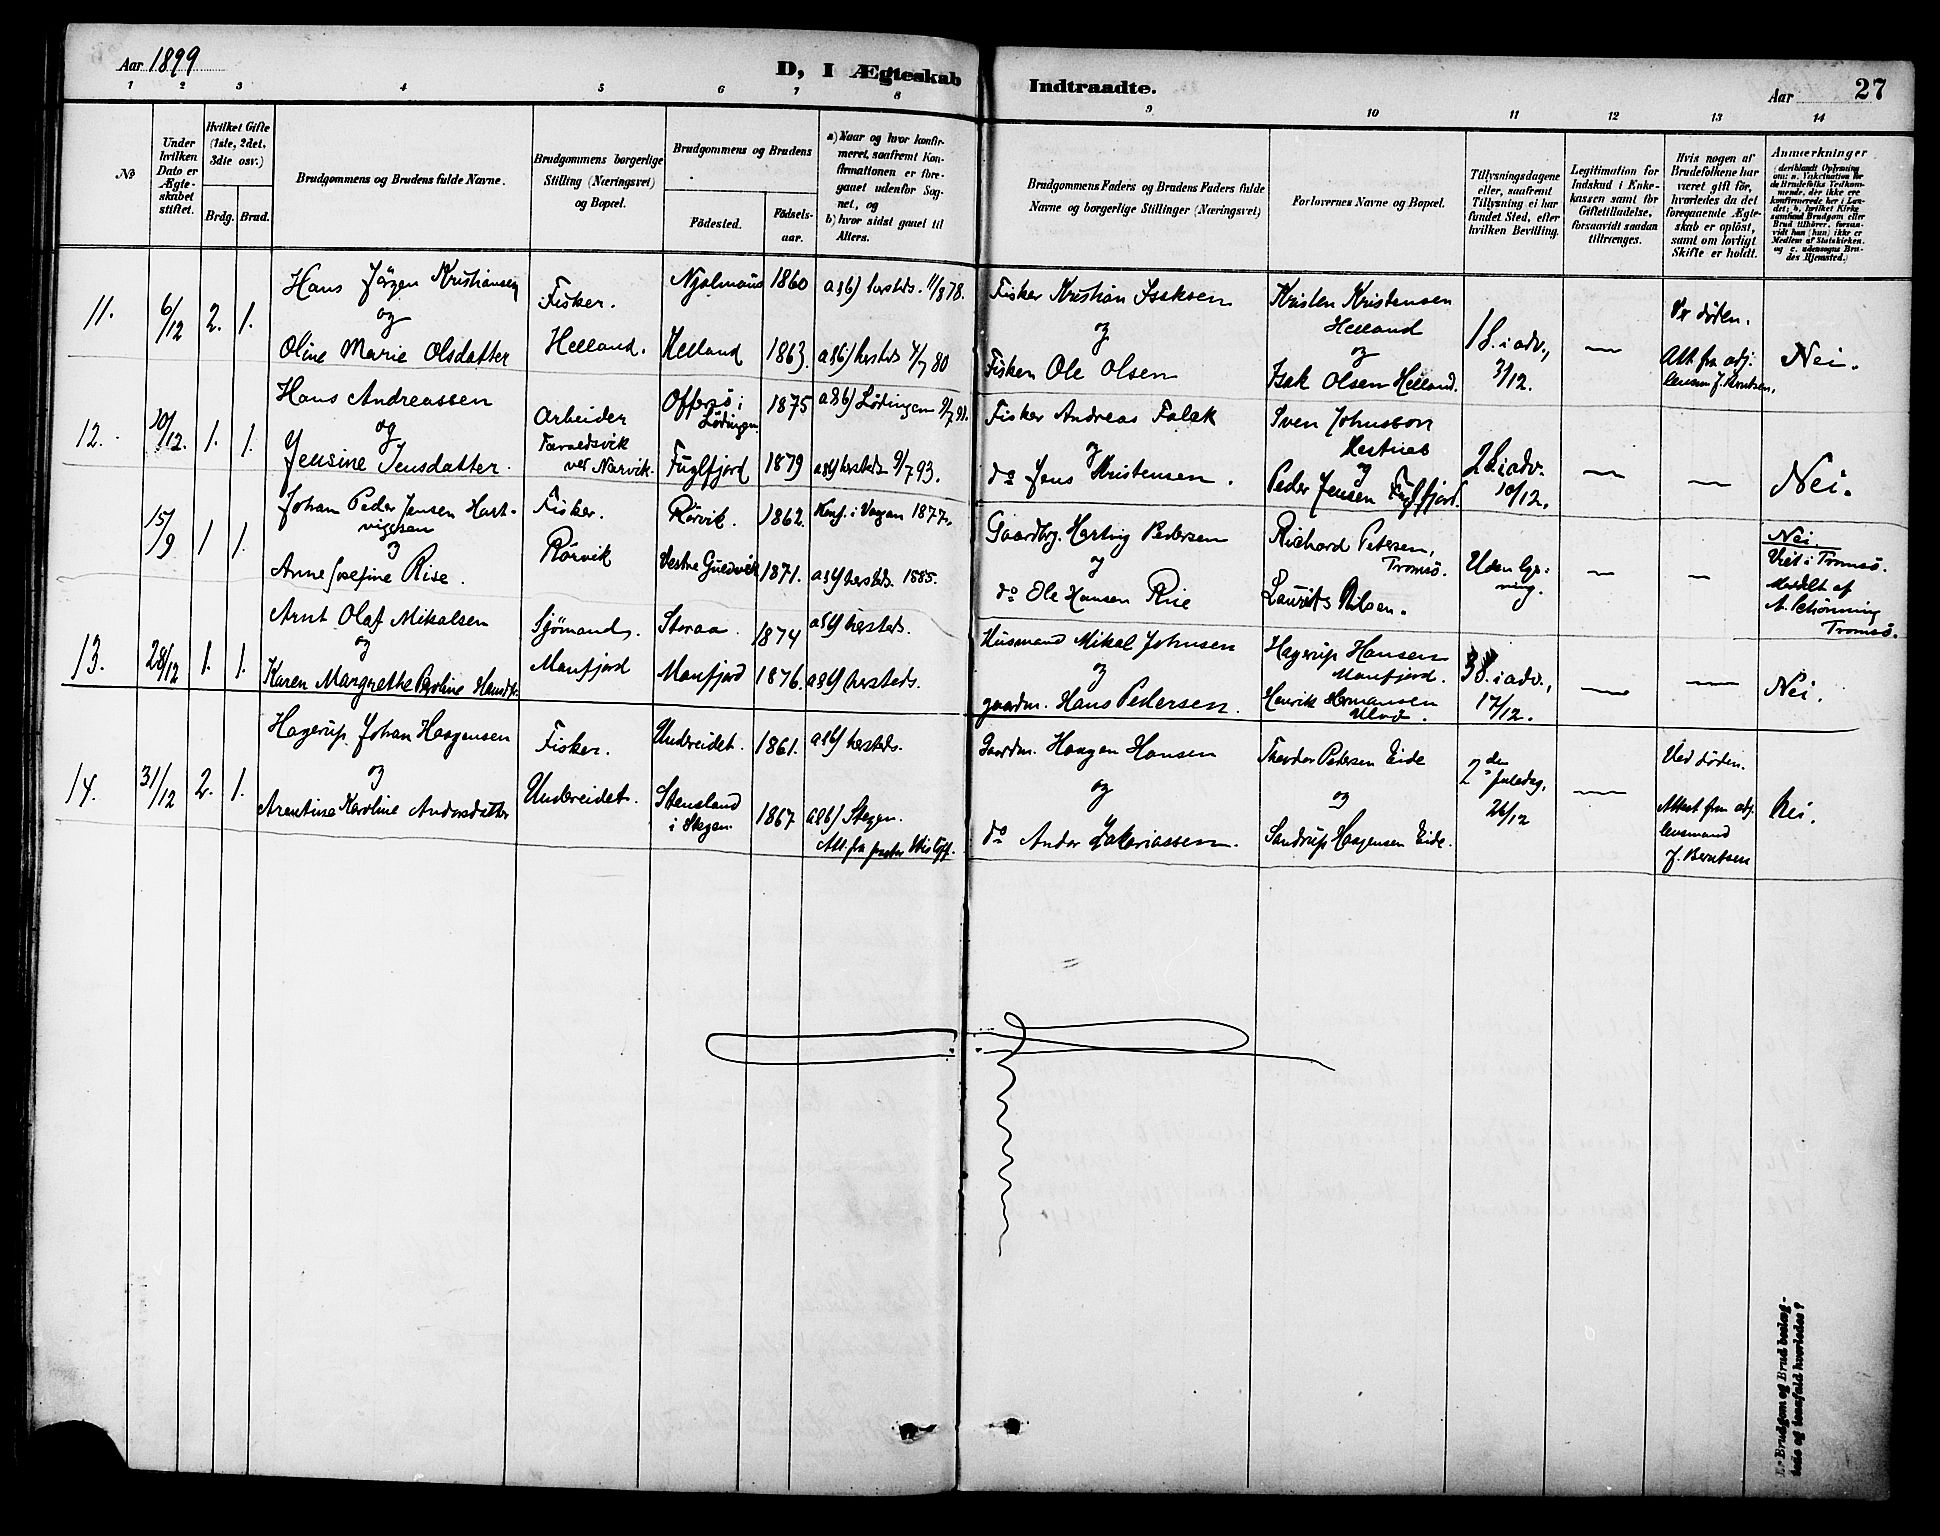 Aar 1899
D, I Ægteskab Indtraadte.
Aar
27
1 2 3 4 5 6 7 8 9 10 11 12 13 14
No
Under hvilken Dato er Ægteskabet stiftet.
Hvilket Gifte (1ste, 2det, 3die osv.)
Brdg. Brud.
Brudgommens og Brudens fulde Navne.
Brudgommens borgerlige Stilling (Næringsvei) og Bopæl.
Brudgommens og Brudens
Födested.
Födsels-aar.
a) Naar og hvor konfirmeret, saafremt Konfirmationen er foregaaet udenfor Sognet, og
b) hvor sidst gaaet til Alters.
Brudgommens Faders og Brudens Faders fulde Navne og borgerlige Stillinger (Næringsvei)
Forlovernes Navne og Bopæl.
Tillysningsdagene eller, saafremt Tillysning ei har fundet Sted, efter hvilken Bevilling.
Legitimation for Indskud i Enkekassen samt for Giftetilladelse, forsaavidt saadan tiltrænges.
Hvis nogen af Brudefolkene har været gift för, hvorledes da det foregaaende Ægteskab er oplöst, samt om lovligt Skifte er holdt.
Anmærkninger
11. 6/12 2. 1.
Hans Jörgen Kristiansen
og
Oline Marie Olsdatter
Fisker.
Helland.
1860
Helland 1863.
a&b) hersteds 80
Fisker Kristian Isaksen
og
Fisker Ole Olsen
Kristen Kristensen
Helland
og
Isak Olsen Helland.
1 S. i adv.,
3/12.
—
Ved döden.
Att. fra adj.
Nei.
12. 10/12. 1. 1.
Hans Andreassen
og
Jensine Jensdatter.
Arbeider
ved Narvik.
Offersö i
Lödingen
1875
a&b) Lödingen
Fuglfjord 1879
a&b) hersteds 9/7 93.
Fisker Andreas Falck
og
do Jens Kristensen.
Sven Johnsson
og
Peder Jensen Fuglfjord.
2 S. i adv.
10/12.
— —
Nei.
15/9 1 1.
Johan Peder Jensen Hart-
vigsen
og
Anne Josefine Rise.
Fisker.
Rörvik
Rörvik. 1862.
Konf. i Vaagan 1877.
1871. a&b) hersteds. 1885.
Gaardbr. Hartvig Pedersen
og
do Ole Hansen Rise
Richard Petersen,
Tromsö.
Laurits Nilsen.
Uden lys-
ning.
— —
Nei.
Viet i Tromsö.
Meddelt af
A. Schönning
Tromsö.
13. 28/12 1. 1.
Arnt Olaf Mikalsen
og
Karen Margrethe Pauline Hansdtr.
Sjömand.
Manfjord
Storaa. 1874 a&b) hersteds.
Manfjord 1876. a&b) hersteds.
Husmand Mikal Johnsen
og
gaardm. Hans Pedersen.
Hagerup Hansen
Manfjord.
Henrik Hermansen
3 S. i adv.,
17/12.
— —
Nei.
14. 31/12 2. 1.
Hagerup Johan Haagensen
og
Arentine Karoline Andorsdatter
Fisker.
Indreidet.
Indreidet. 1861. a&b) hersteds.
Stensland
i Stegen.
1867 a&b) Stegen.
Att. fra pastor
Gaardm. Haagen Hansen
og
do Andor Zakariassen.
Theodor Pedersen Eide
og
Sandrup Haagensen Eide.
2den
juledag,
26/12
—
Ved döden.
Attest fra adj.
lensmand
J. Berntsen
Nei.